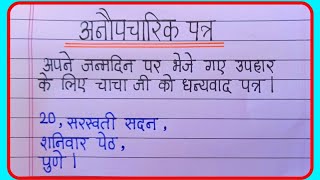 अनौपचारिक पत्र
अपने जन्मदिन पर भेजे गए उपहार
के लिए चाचा जी को धन्यवाद पत्र ।
20, सरस्वती सदन,
शनिवार पेठ,
पुणे ।